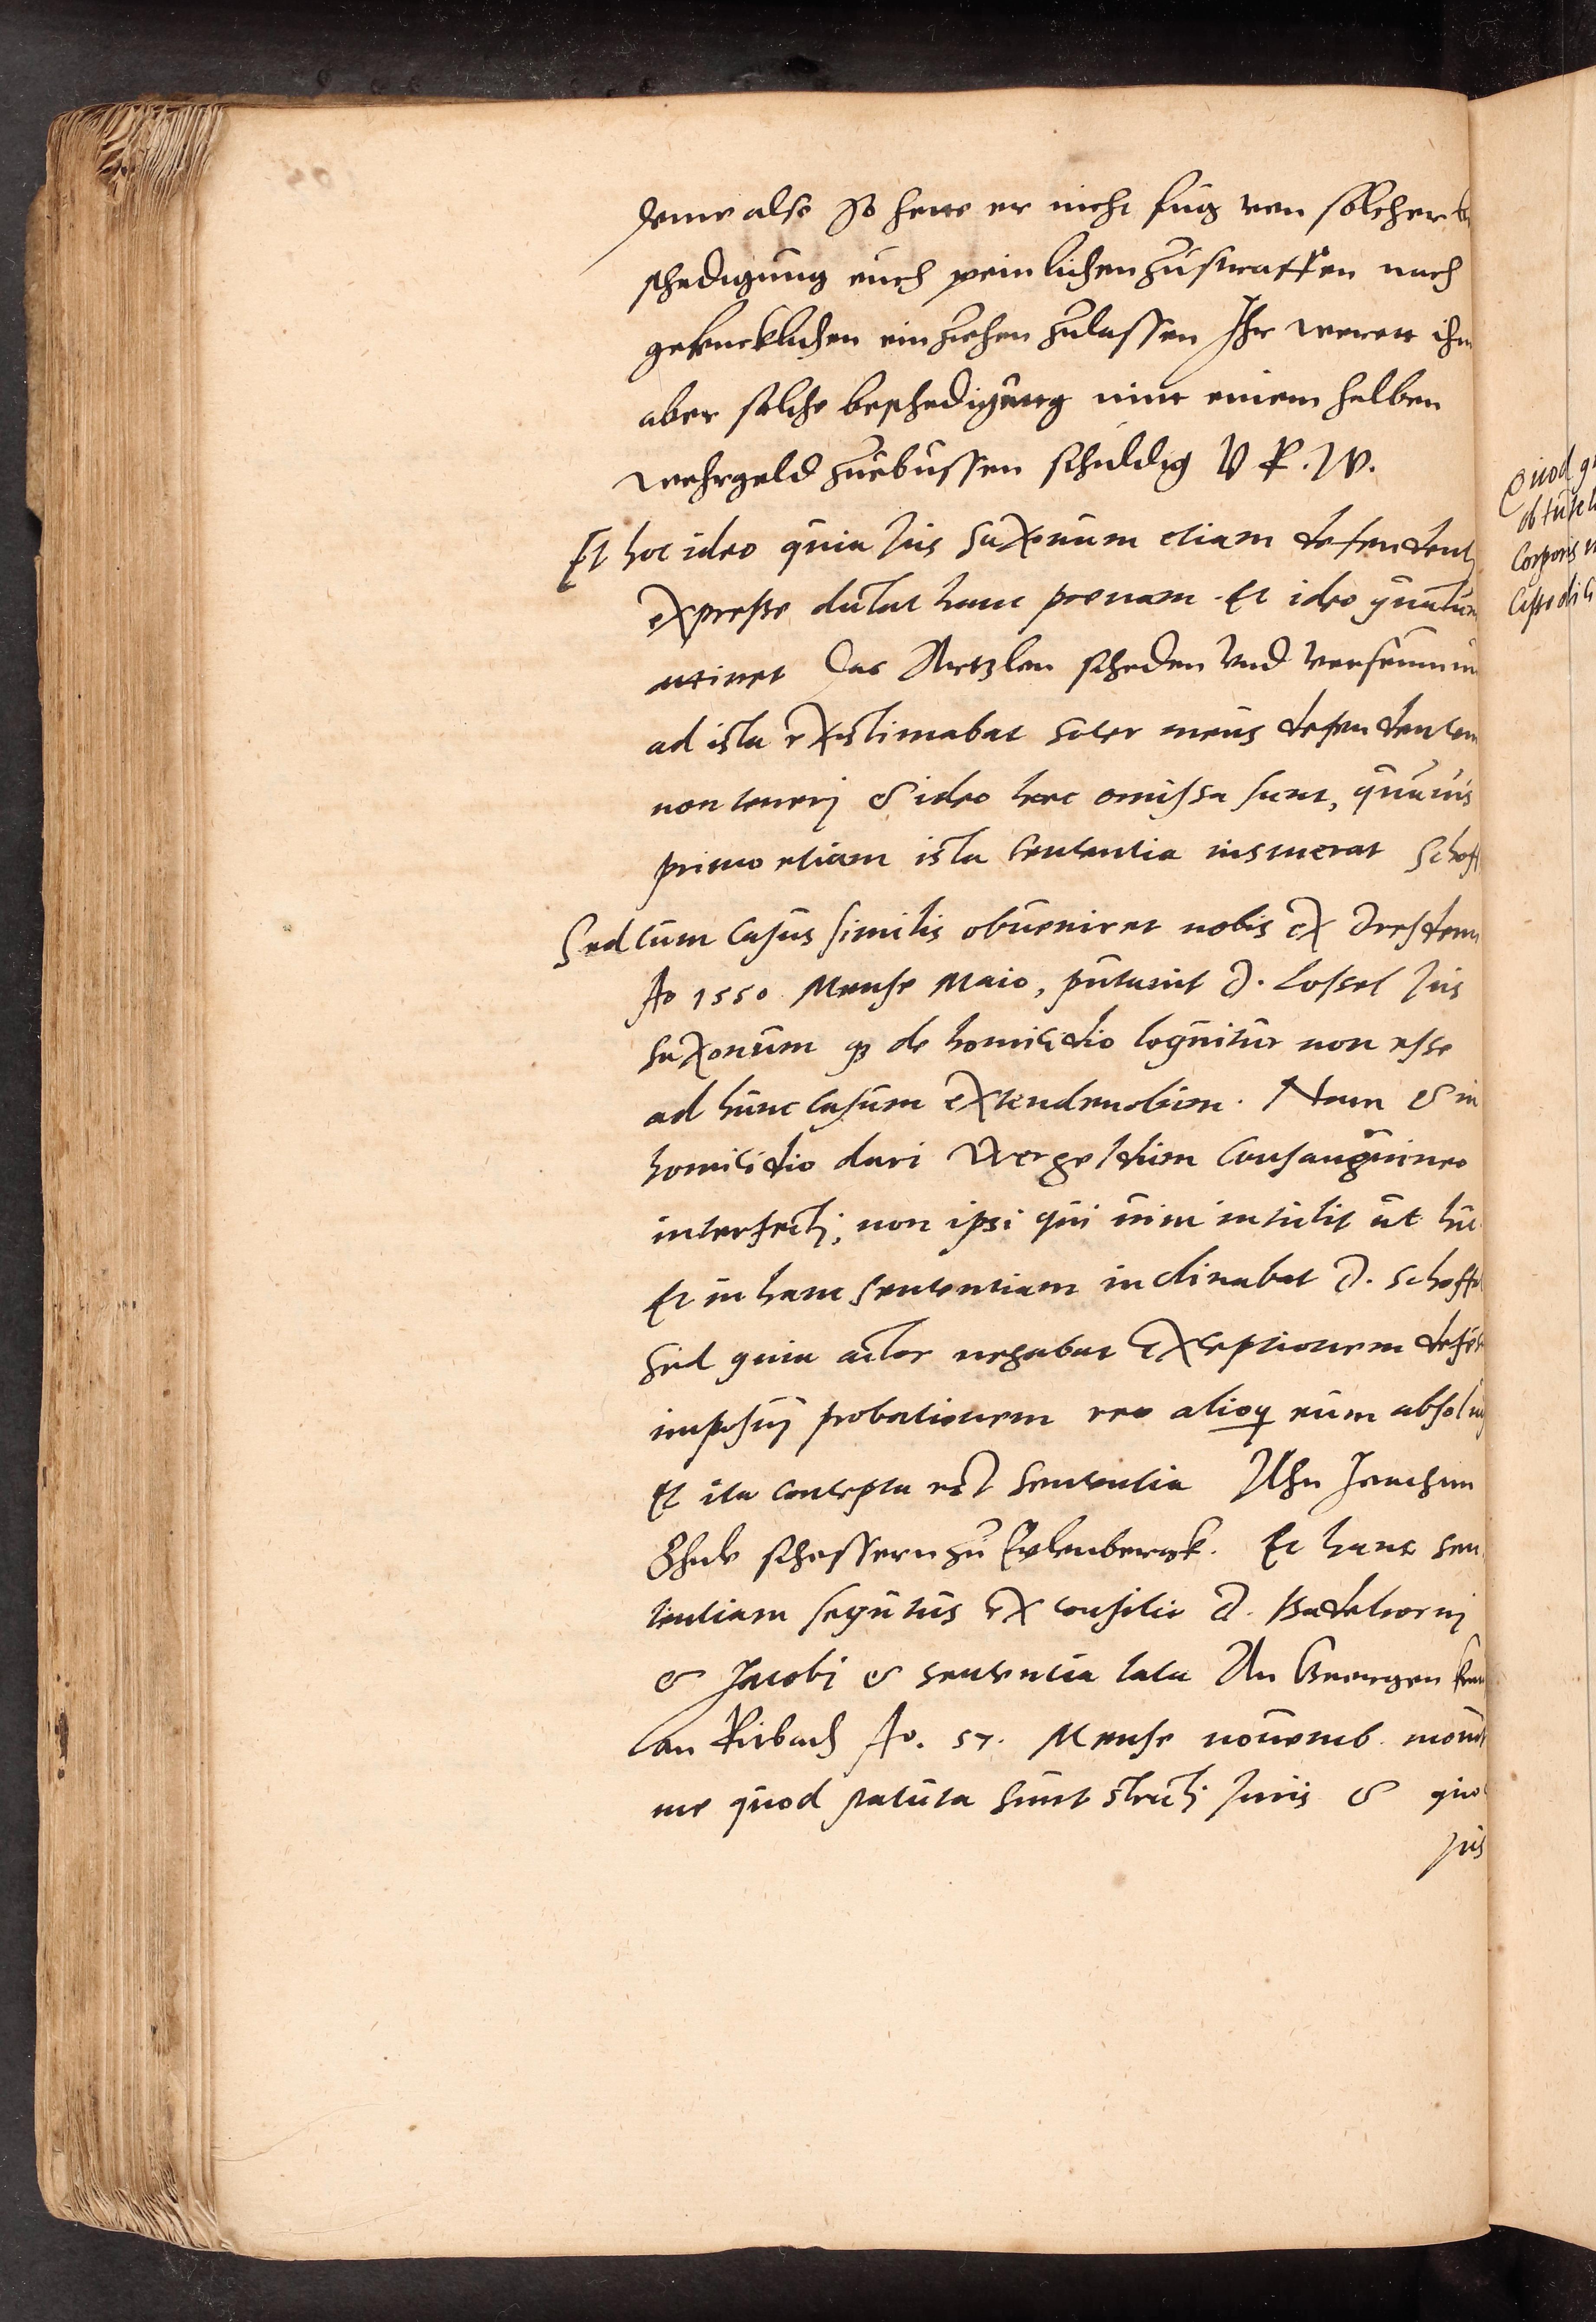 deme also So hette er nicht fug von solcher be
schedigung euch peinlichen zustraffen nach
gefencklichen einziehen zulassen Ihr weret ihm
aber solche beschedigung mitt einem halben
wehrgeld zuebussen schuldig V R. W.
Et hoc ideo quia Jus Saxonum etiam defendentj
expresse dictat hanc poenam. Et ideo quatum
attinet Das Artzlon scheden Vnd versaumn
ad ista existimabat socer meus defendentem
non tenerj & ideo haec omissa sunt, quamuis
primo etiam ista sententia Schoff
Sed cum casus similis obueniret nobis ex Dresden
Ao 1550 Mense Maio, putauit D. Lossel Jus
Saxonum qz de homicidio loquitur non esse
ad hunc casum extendendum. Nam & in
homicidio dari Wergeldum consanguineo
interfectj, non ipsi qui uim intulit ut hic
Et in hanc sententiam inclinabat D. Schoff
Sed quia actor negabat exceptionem defen
imposuj probationem reo alioq eum absolui
Et ita concepta est sententia Ahn Joachim
schossern zu Eylenbergk. Et hanc sen
tentiam sequutus ex consilio D. Badehornj
& Jacobi & sententia lata An Georgen
Ao. 57. Mense nouemb. mouit
me quod statuta sunt strictj Juris & quod
Jus
Quod
Corporis